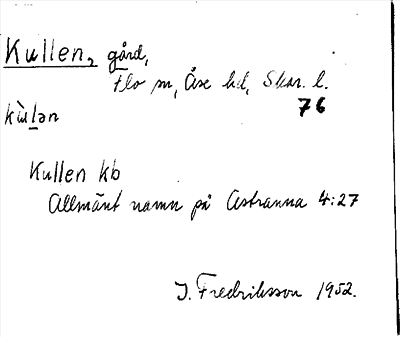 Kullen, gård,
Flo sn, Åse hd, Skar. l.
76
kùlən
Kullen kb
Allmänt namn på Astranna 4:27
I. Fredriksson 1952.